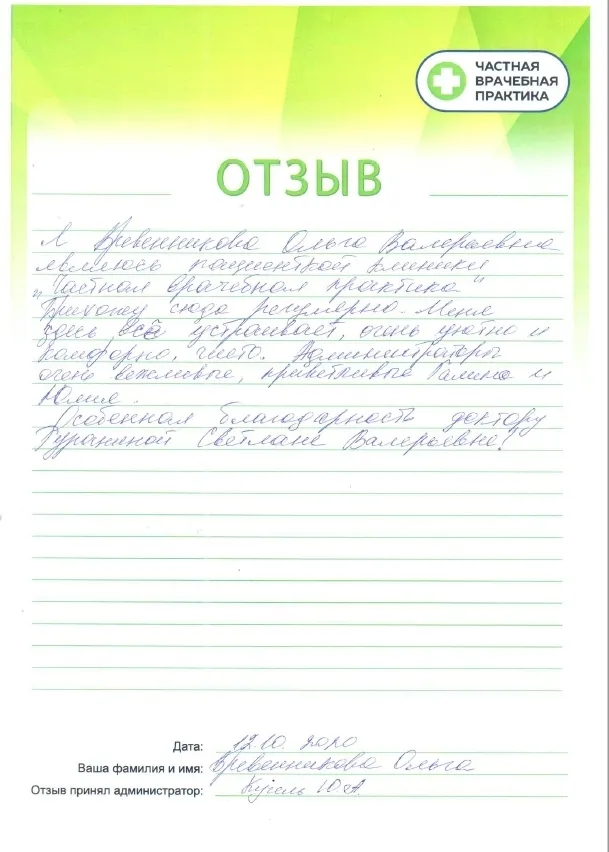 ЧАСТНАЯ
ВРАЧЕБНАЯ
ПРАКТИКА
ОТЗЫВ
Я Бревенникова Ольга Валерьевна
являюсь пациенткой клиники
"Частная врачебная практика"
Прихожу сюда регулярно. Меня
здесь всё устраивает, очень уютно и
комфорно, чисто. Администраторы
очень вежливые, приветливые Галина и
Юлия.
Особенная благодарность доктору
Светлане Валерьевне!
Дата: 12.10. 2020
Ваша фамилия и имя: Бревенникова Ольга
Отзыв принял администратор: Ю.А.